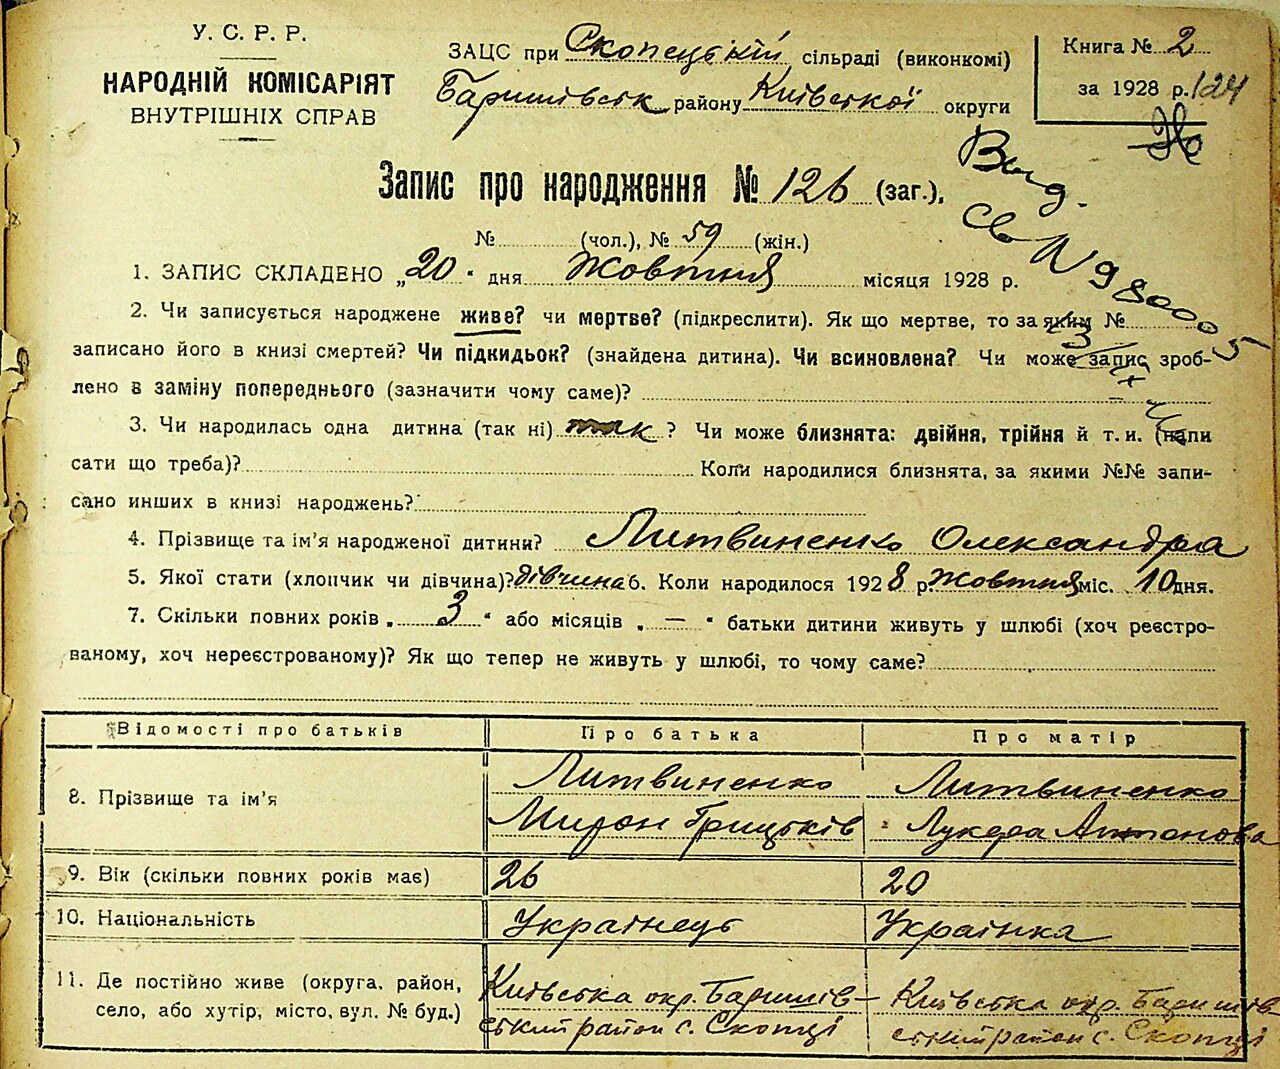 У. С. Р. Р.
НАРОДНІЙ КОМІСАРІЯТ
ВНУТРІШНІХ СПРАВ
ЗАЦС при Скопецькій сільраді (виконкомі)
Баришівськ району Київської округи
Книга № 2
за 1928 р. 124
Запис про народження № 126 (заг.),
№ (чол.), № 59 (жін.)
Выд.
св N 980005
1. ЗАПИС СКЛАДЕНО „20“ дня Жовтня місяця 1928 р.
2. Чи записується народжене живе? чи мертве? (підкреслити). Як що мертве, то за яким №
записано його в книзі смертей? Чи підкидьок? (знайдена дитина). Чи всиновлена? Чи може запис зроб-
лено в заміну попереднього (зазначити чому саме)?
3. Чи народилась одна дитина (так ні) так ? Чи може близнята: двійня, трійня й т. и. (напи
сати що треба)? Коли народилися близнята, за якими №№ запи-
сано инших в книзі народжень?
4. Прізвище та ім'я народженої дитини? Литвиненко Олександра
5. Якої стати (хлопчик чи дівчина)? дівчина 6. Коли народилося 1928 р. Жовтня міс. 10 дня.
7. Скільки повних років „ 3 “ або місяців „ — “ батьки дитини живуть у шлюбі (хоч реєстро-
ваному, хоч нереєстрованому)? Як що тепер не живуть у шлюбі, то чому саме?
Відомості про батьків Про батька Про матір
8. Прізвище та ім'я Литвиненко Мирон Грицьків Литвиненко Лукера Антонова
9. Вік (скільки повних років має) 26 20
10. Національність Українець Українка
11. Де постійно живе (округа, район, Київська окр. Баришів- Київська окр. Баришів
село, або хутір, місто, вул. № буд.) ський район с. Скопці ський район с. Скопці